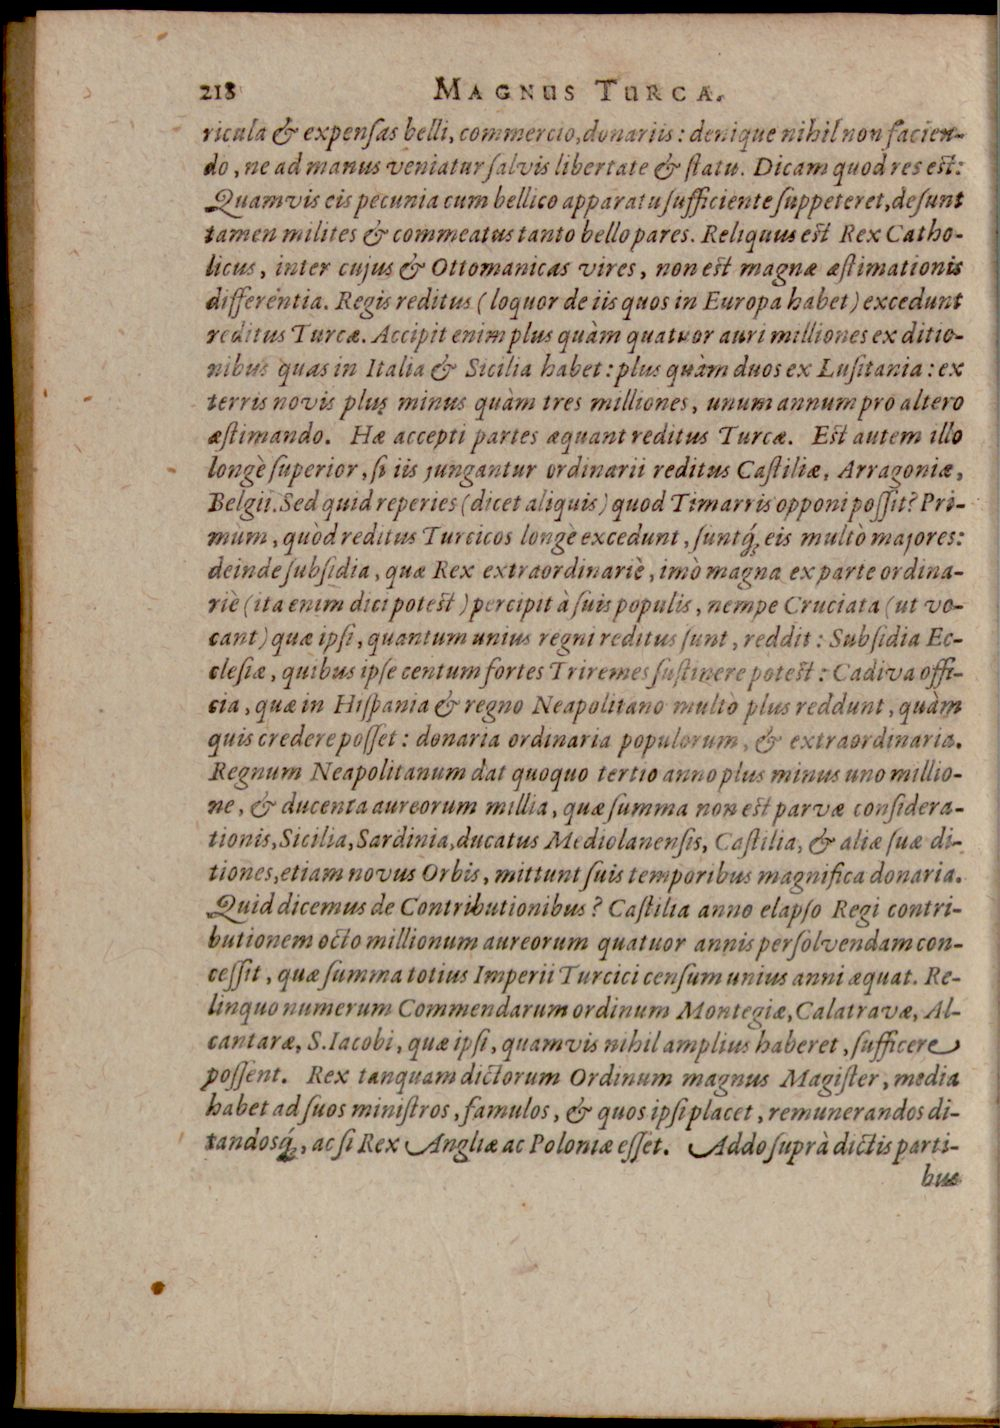 218 MAGNUS TURCA.
ricula & expenſas belli, commercio, donariis: denique nihil non facien-
do, ne ad manus veniatur ſalvis libertate & ſtatu. Dicam quod res est:
Quamvis eis pecunia cum bellico apparatu ſufficiente ſuppeteret, deſunt
tamen milites & commeatus tanto bello pares. Reliquus est Rex Catho-
licus, inter cujus & Ottomanicas vires, non est magnæ æſtimationis
differentia. Regis reditus (loquor de iis quos in Europa habet) excedunt
reditus Turcæ. Accipit enim plus quàm quatuor auri milliones ex ditio-
nibus quas in Italia & Sicilia habet: plus quàm duos ex Luſitania: ex
terris novis plus minus quàm tres milliones, unum annum pro altero
æſtimando. Hæ accepti partes æquant reditus Turcæ. Est autem illo
longè ſuperior, ſi iis jungantur ordinarii reditus Caſtiliæ, Arragoniæ,
Belgii. Sed quid reperies (dicet aliquis) quod Timarris opponi poſſit? Pri-
mùm, quòd reditus Turcicos longè excedunt, ſuntq́; eis multò majores:
deinde ſubſidia, quæ Rex extraordinariè, imò magna ex parte ordina-
riè (ita enim dici potest) percipit à ſuis populis, nempe Cruciata (ut vo-
cant) quæ ipſi, quantum unius regni reditus ſunt, reddit: Subſidia Ec-
cleſiæ, quibus ipſe centum fortes Triremes ſuſtinere potest: Cadiva offi-
cia, quæ in Hiſpania & regno Neapolitano multò plus reddunt, quàm
quis credere poſſet: donaria ordinaria populorum, & extraordinaria.
Regnum Neapolitanum dat quoquo tertio anno plus minus uno millio-
ne, & ducenta aureorum millia, quæ ſumma non est parvæ conſidera-
tionis, Sicilia, Sardinia, ducatus Mediolanenſis, Caſtilia, & aliæ ſuæ di-
tiones, etiam novus Orbis, mittunt ſuis temporibus magnifica donaria.
Quid dicemus de Contributionibus? Caſtilia anno elapſo Regi contri-
butionem octo millionum aureorum quatuor annis perſolvendam con-
ceſſit, quæ ſumma totius Imperii Turcici cenſum unius anni æquat. Re-
linquo numerum Commendarum ordinum Montegiæ, Calatravæ, Al-
cantaræ, S. Iacobi, quæ ipſi, quamvis nihil amplius haberet, ſufficere
poſſent. Rex tanquam dictorum Ordinum magnus Magiſter, media
habet ad ſuos miniſtros, famulos, & quos ipſi placet, remunerandos di-
tandosq́;, ac ſi Rex Angliæ ac Poloniæ eſſet. Addo ſuprà dictis parti-
bus